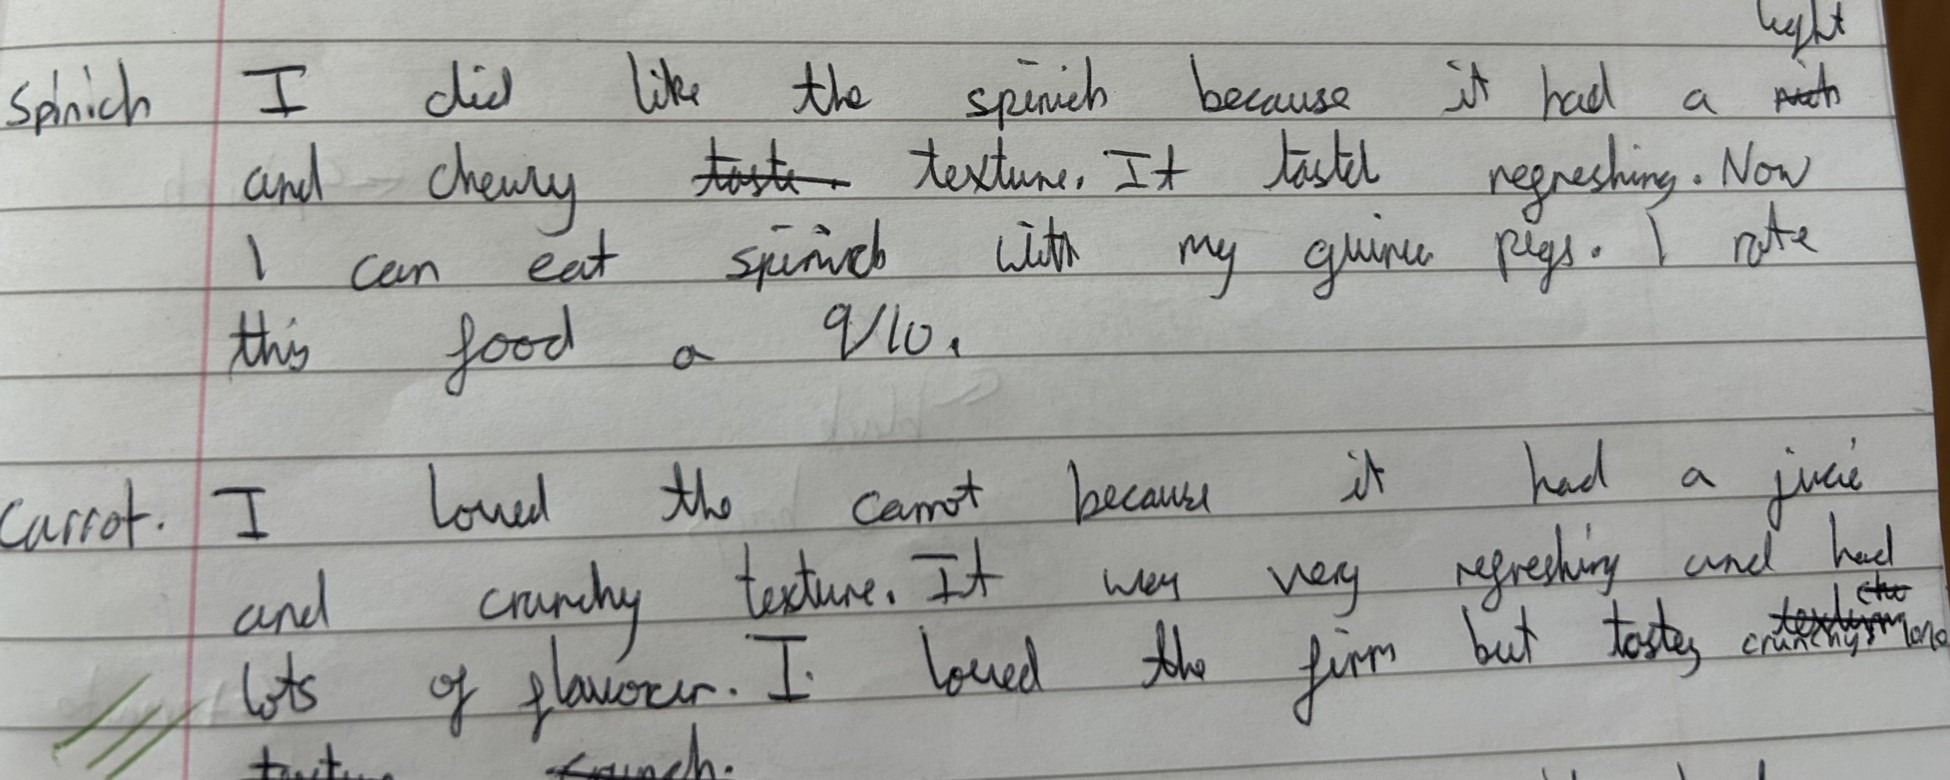 light
Spinich I did like the spinich because it had a
and chewy taste texture. It tasted regreshing. Now
I can eat spinich with my guinea pigs. I rate
this food a 9/10.
Carrot. I loved the carrot because it had a jucie
and crunchy texture. It was very regreshing and had
lots of flavour. I loved the firm but tastey crunchy
crunch.